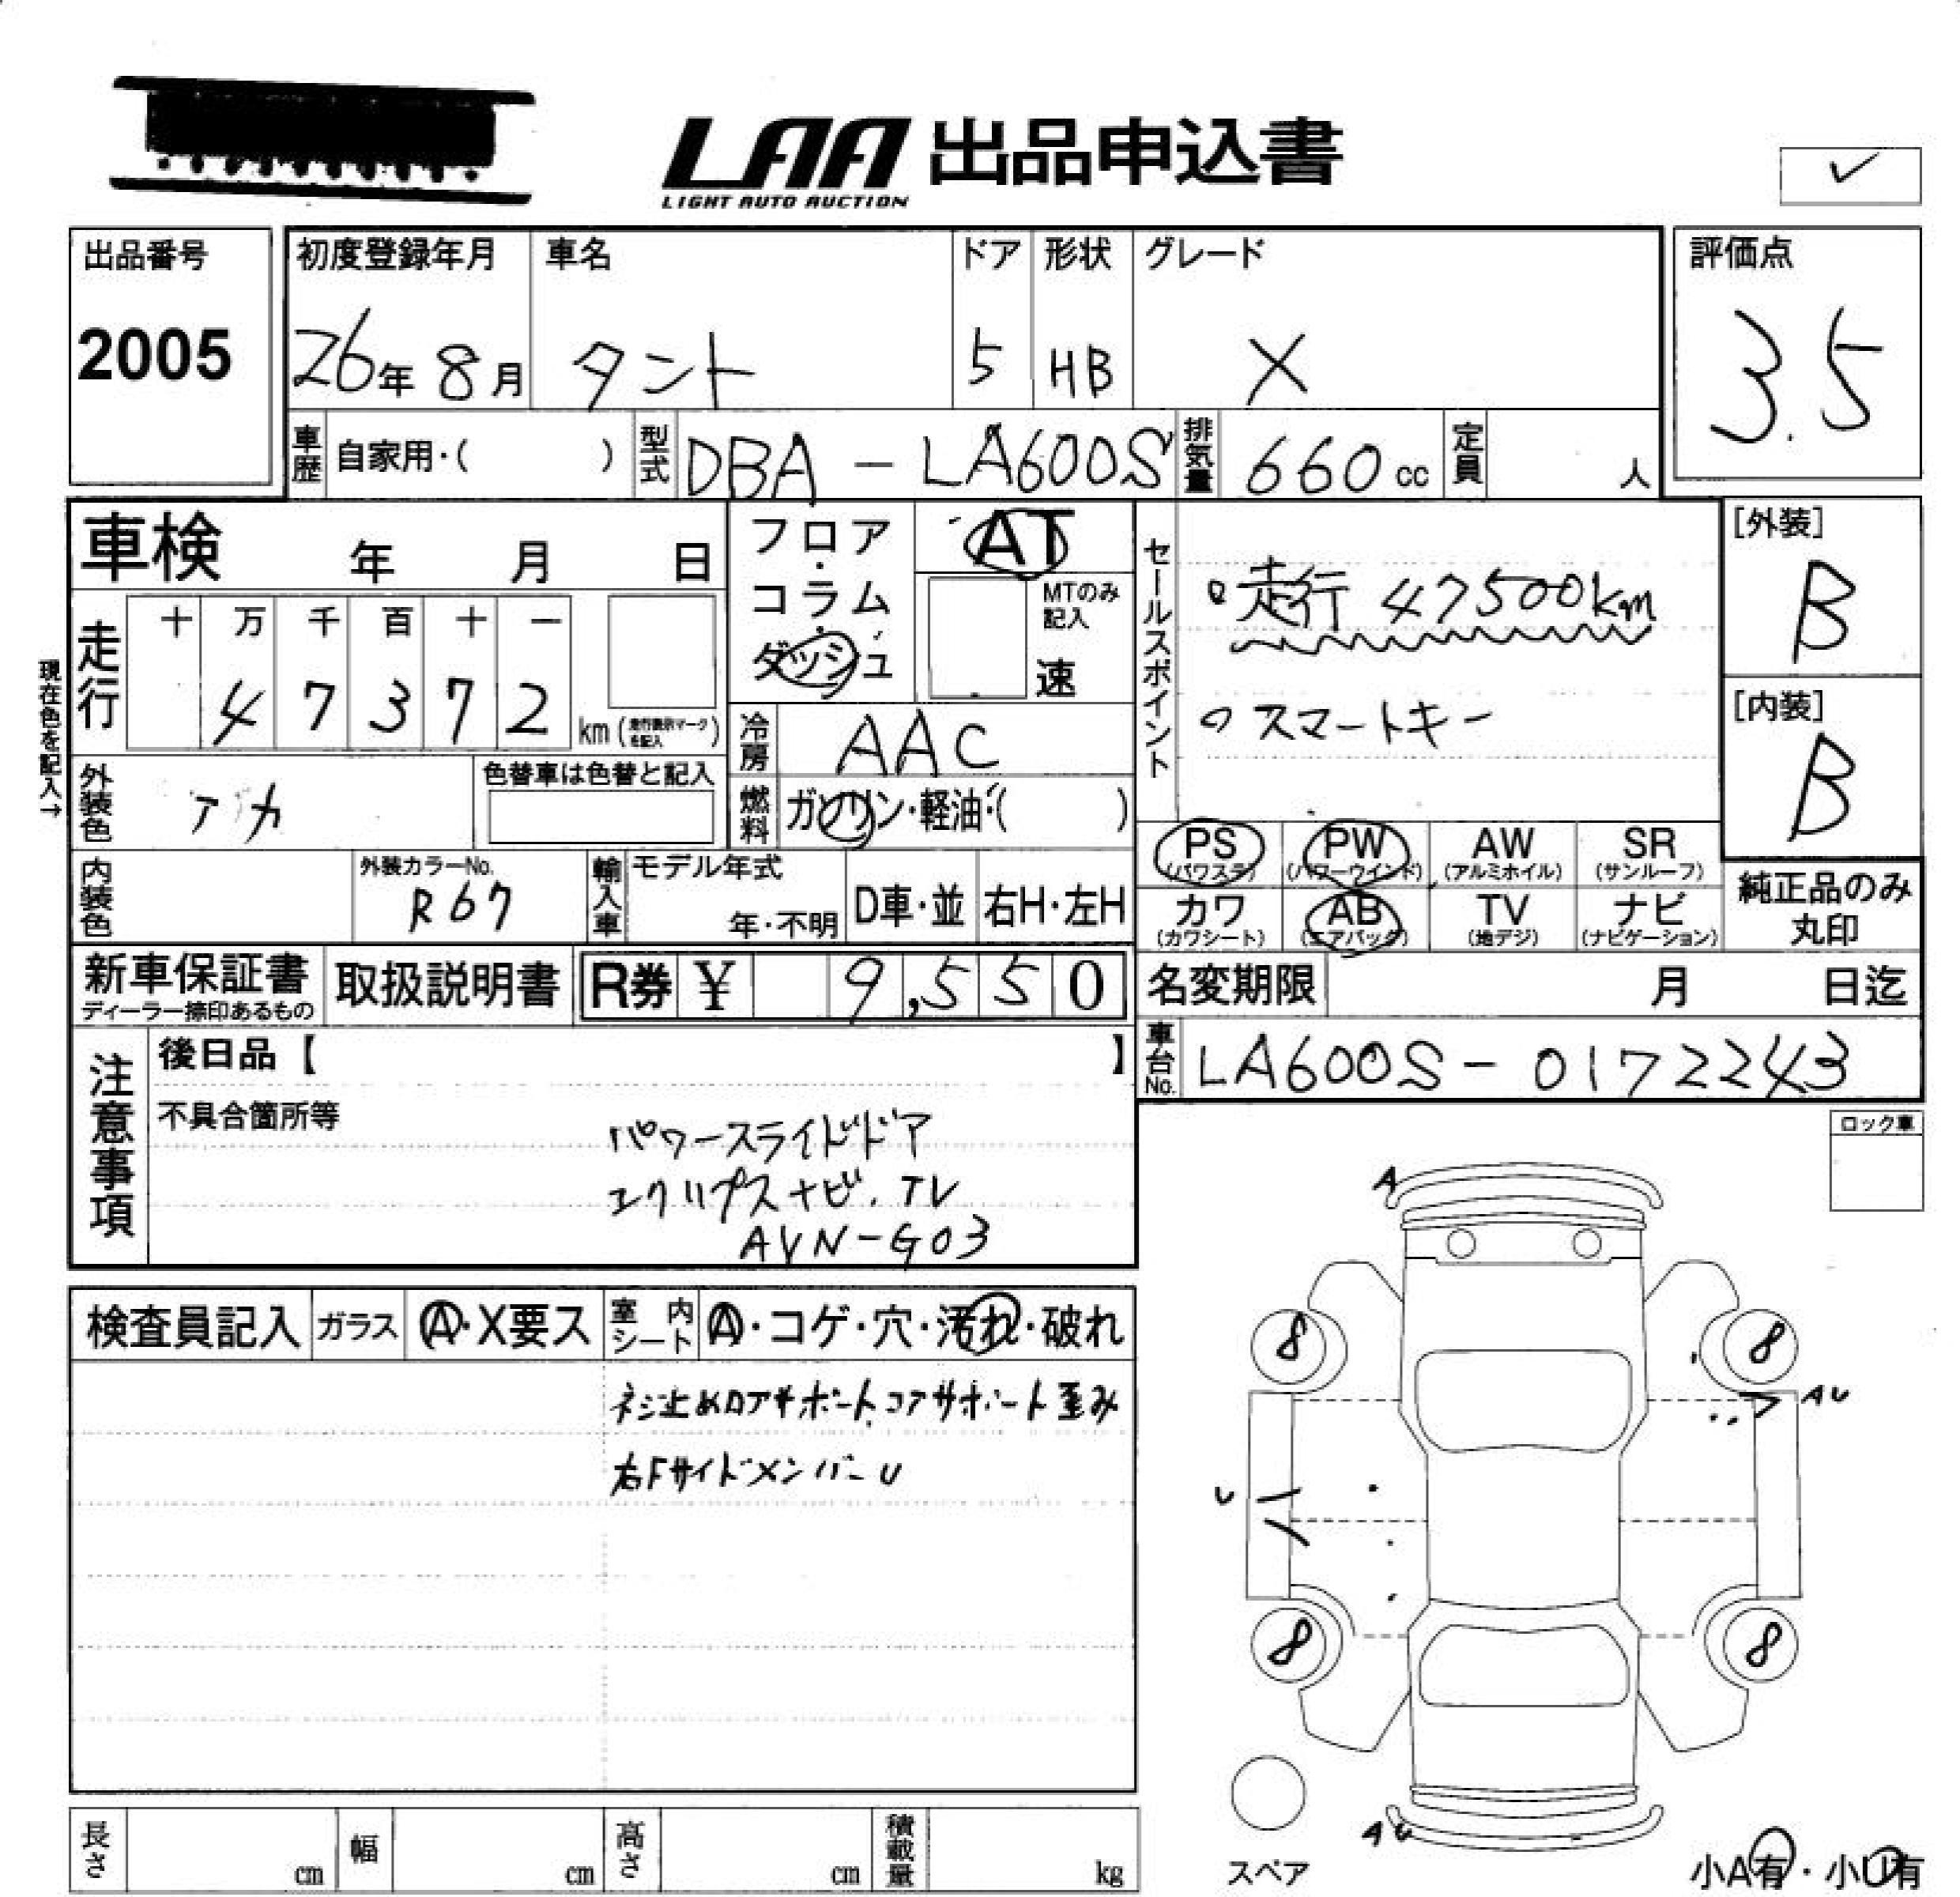 LAA 出品申込書
LIGHT AUTO AUCTION
✓
出品番号
2005
初度登録年月 車名 ドア 形状 グレード
26年 8月 タント 5 HB X
評価点
3.5
車歴 自家用・( ) 型式 DBA-LA600S 排気量 660cc 定員 人
車検 年 月 日
フロア・コラム・ダッシュ
AT
MTのみ記入
速
現在色を記入→
走行 十 万 千 百 十 一
4 7 3 7 2 km (走行表示マークを記入)
冷房 AAC
燃料 ガソリン・軽油・( )
外装色 アカ 色替車は色替と記入
内装色 外装カラーNo. R67
輸入車 モデル年式 年・不明 D車・並 右H・左H
セールスポイント
走行 47500km
スマートキー
[外装]
B
[内装]
B
PS (パワステ) PW (パワーウインド) AW (アルミホイル) SR (サンルーフ)
カワ (カワシート) AB (エアバッグ) TV (地デジ) ナビ (ナビゲーション)
純正品のみ
丸印
新車保証書 取扱説明書 R券 ¥ 9,550
ディーラー捺印あるもの
名変期限 月 日迄
車台No. LA600S-0172243
注意事項
後日品【 】
不具合箇所等
パワースライドドア
エクリプスナビ.TV
AVN-G03
ロック車
検査員記入 ガラス A・X要ス 室内シート A・コゲ・穴・汚れ・破れ
ネジ止めロアサポート、コアサポート歪み
右FサイドメンバーU
A
8 8
AU
U
8 8
AU
スペア
小A有・小U有
長さ cm 幅 cm 高さ cm 積載量 kg